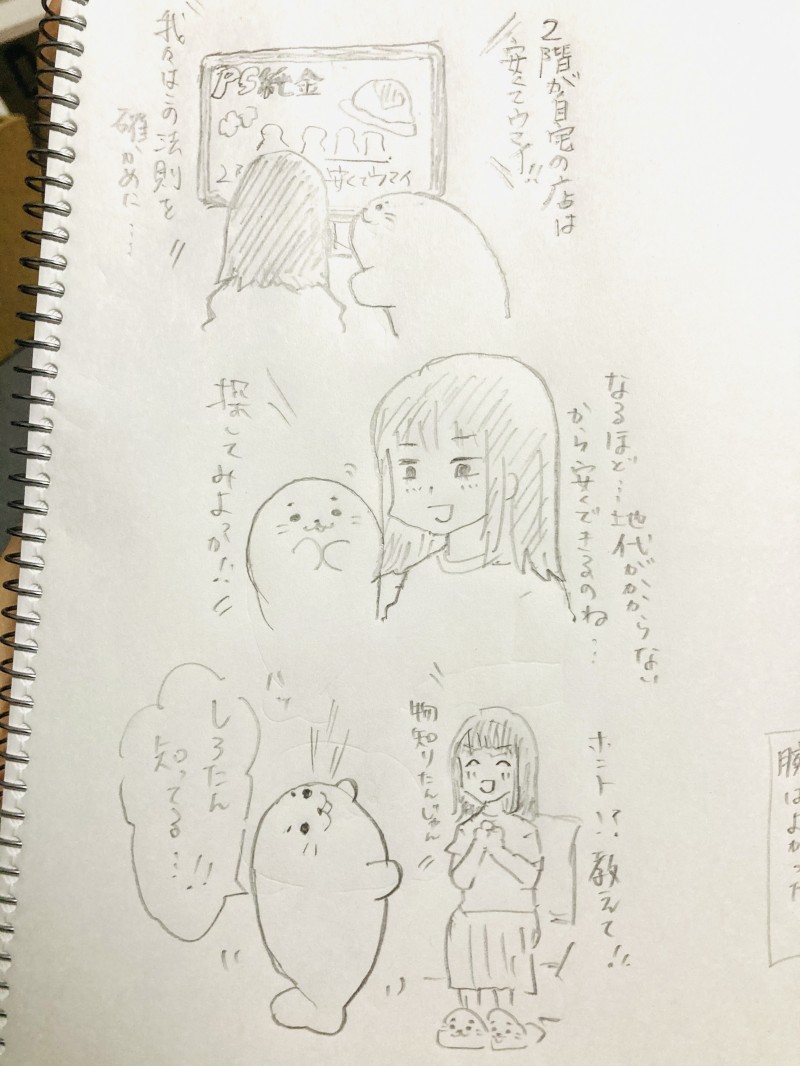 2階が自宅の店は
安くてウマイ!!
PS純金
安くてウマイ
我々はこの法則を
確かめた…
なるほど…地代がかからない
から安くできるのね…
探してみよっか!!
ホント!?教えて!!
物知りたんじゃん
ハッ
しろたん
知ってる…!!
腕はよかった